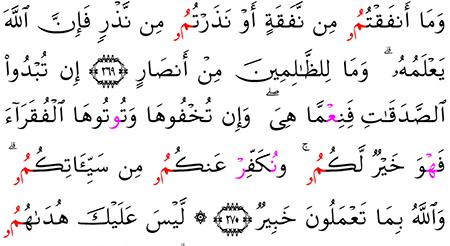 وَمَا أَنفَقْتُمُۥ مِن نَّفَقَةٍ أَوْ نَذَرْتُمُۥ مِن نَّذْرٍ فَإِنَّ ٱللَّهَ
يَعْلَمُهُۥۗ وَمَا لِلظَّٰلِمِينَ مِنْ أَنصَارٍ ٢٦٩ إِن تُبْدُوا۟
ٱلصَّدَقَٰتِ فَنِعْمَّا هِىَۖ وَإِن تُخْفُوهَا وَتُوتُوهَا ٱلْفُقَرَآءَ
فَهْوَ خَيْرٌ لَّكُمُۥۚ وَنُكَفِّرْ عَنكُمُۥ مِن سَيِّـَٔاتِكُمُۥۗ
وَٱللَّهُ بِمَا تَعْمَلُونَ خَبِيرٌ ٢٧٠ ۞ لَّيْسَ عَلَيْكَ هُدَىٰهُمُۥ